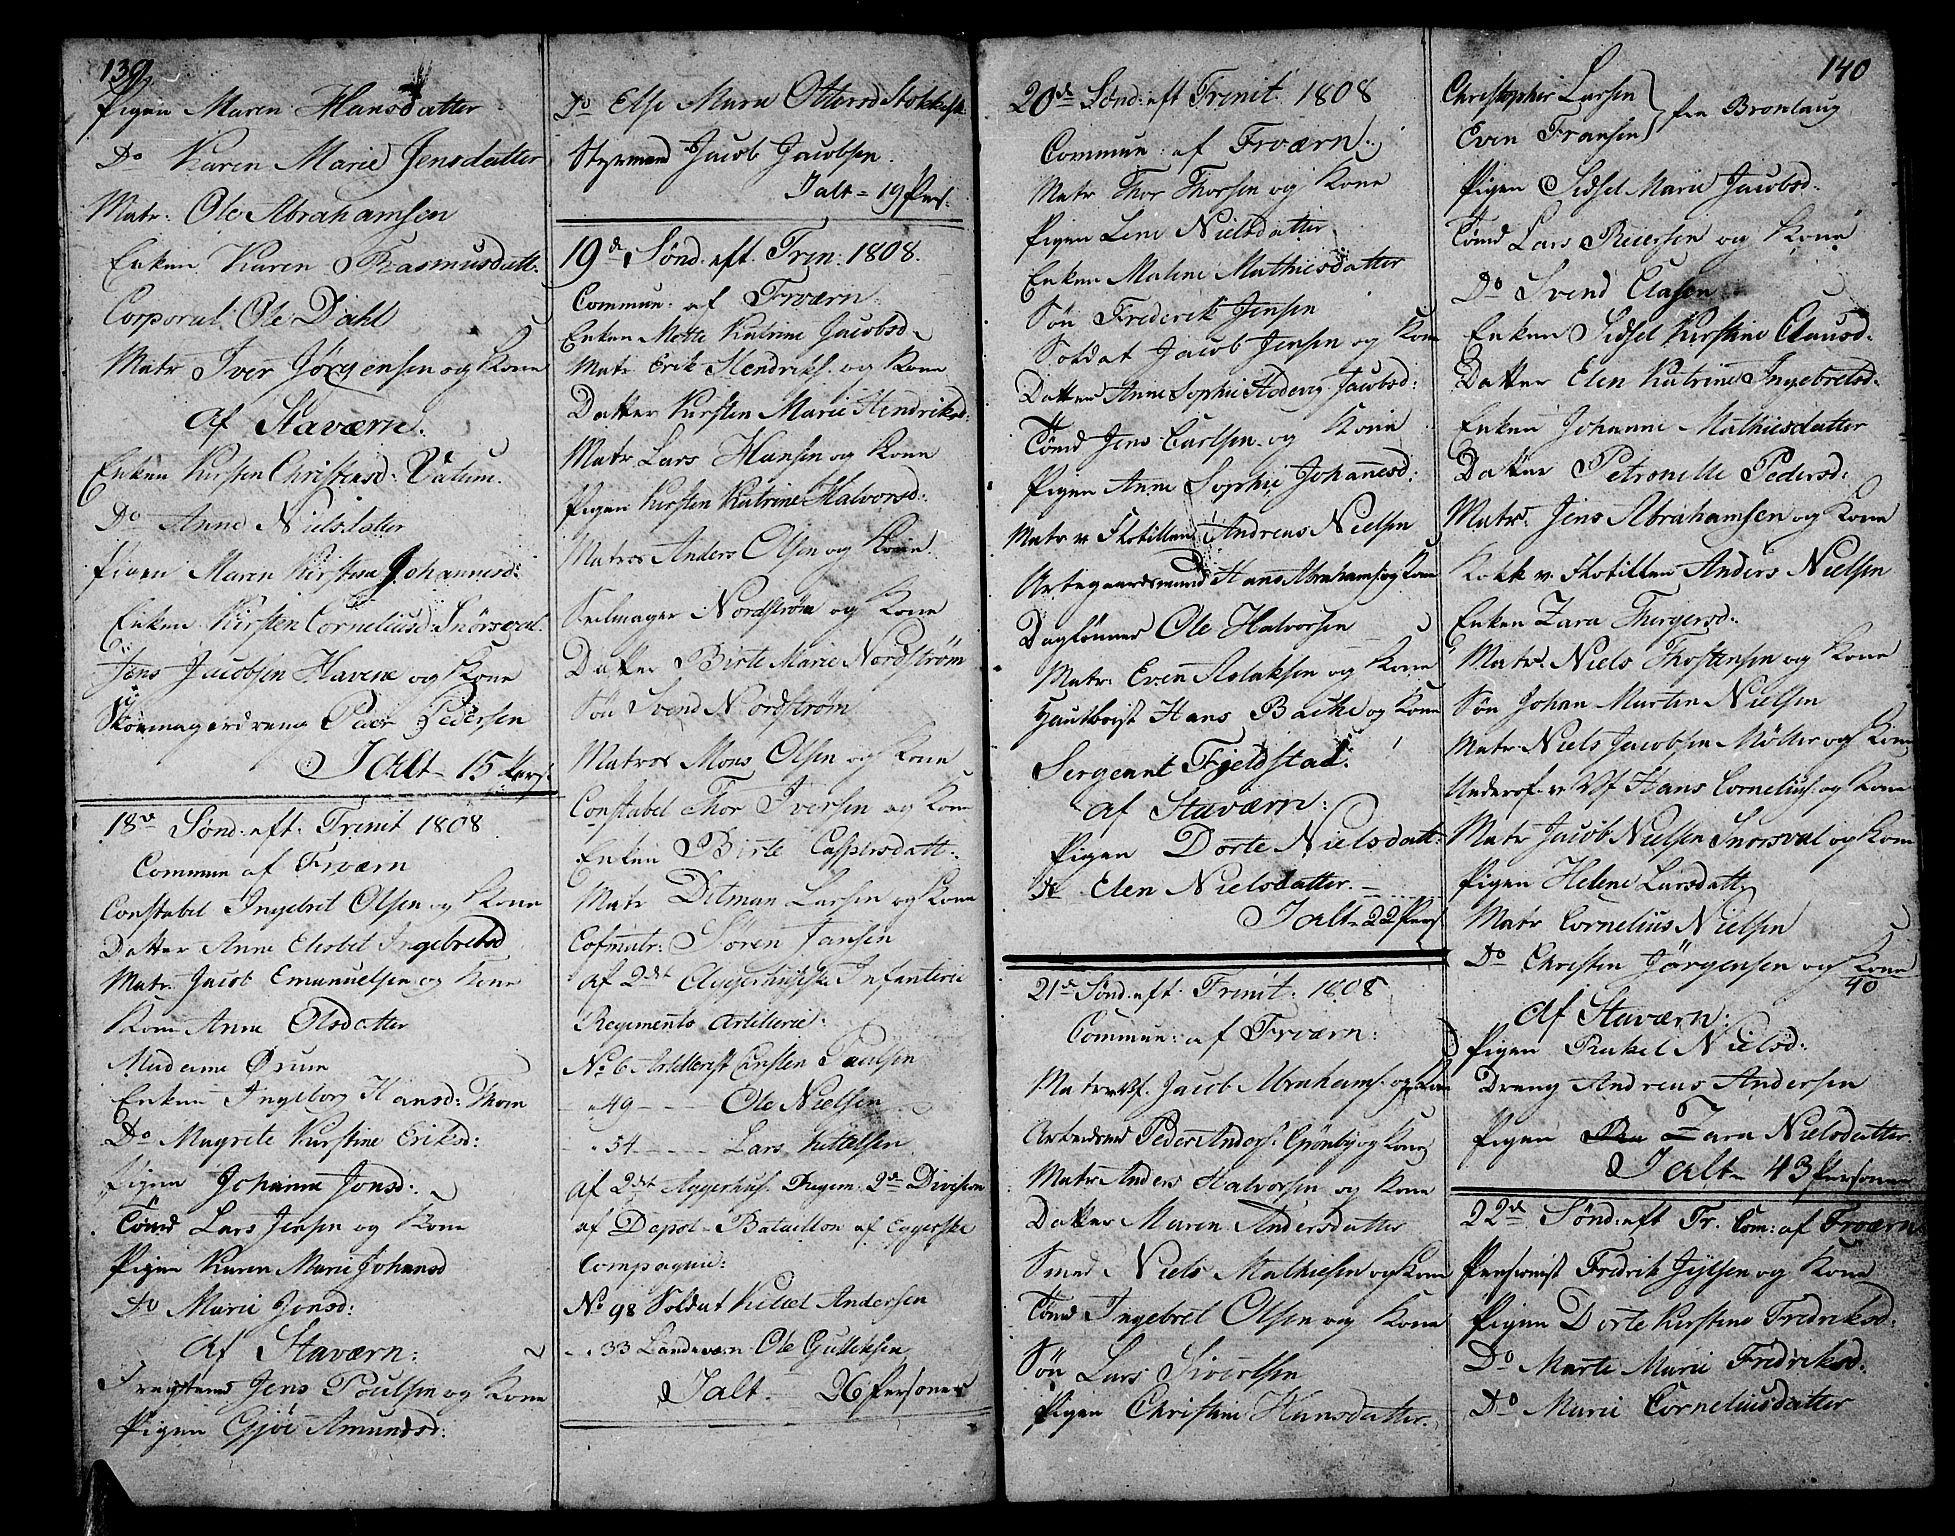 139
Pigen Maren Hansdatter
Do Karen Marie Jensdatter
Matr: Ole Abrahamsen
Enken Karen Rasmusdatt.
Corporal Ole Dahl
Matr Iver Jørgensen og Kone
Af Staværn.
Enken Kirsten Christensd:
Do Anne Nielsdatter
Pigen Maren Kirstine Johannesd:
Enken Kirsten Corneliusd: Snørsval.
Jens Jacobsen Havene og Kone
Skoemagerdreng Peer Pedersen
Ialt - 15 Pers.
18de Sønd. eft. Trinit 1808
Commun af Frværn
Constabel Ingebret Olsen og Kone
Datter Anne Elisabet Ingebretsd
Matr. Jacob Emanuelsen og Kone
Kone Anne Olsdatter
Madame Ørum
Enken Ingeborg Hansd: Thom
Do Magrete Kirstine Eriksd:
Pigen Johanne Jonsd:
Tømd Lars Jensen og Kone
Pigen Karen Marie Johansd
Do Marie Jonsd:
Af Staværn:
Jens Poulsen og Kone
Pigen Gjøe Amundsd:
Do Else Maria Ottersd
Styrmand Jacob Jacobsen.
Ialt = 19 Pers.
19de Sønd. eft. Trin: 1808.
Commun: af Frværn:
Enken Mette Katrine Jacobsd
Matr Erik Hendriks. og Kone
Datter Kirsten Marie Hendriksd:
Matr Lars Hansen og Kone
Pigen Kirsten Katrine Halvorsd:
Matros Anders Olsen og Kone
Seilmager Nordstrøm og Kone
Datter Birte Marie Nordstrøm
Søn Svend Nordstrøm
Matros Mons Olsen og Kone
Constabel Thor Iversen og Kone
Enken Birte Caspersdatt.
Matr Ditman Larsen og Kone
Cofmatr: Søren Jansen
Af 2det Aggerhusiske Infanterie
Regiments Artillerie:
No 6 Artillerist Carsten Paulsen
- 49 - - - Ole Nielsen
- 54 - - - Lars Kittelsen
Af 2det Aggerhus. Regim: 2de Division
af Depot-Batailion af Eggerske
Compagnie:
No 98 Soldat Kittel Andersen
- 33 Landeværn Ole Gulliksen
Ialt - 26 Personer
20de Sønd: eft Trinit. 1808
Commun: af Frværn:
Matr Thor Thorsen og Kone
Pigen Lene Nielsdatter
Enken Malene Mathiesdatter
Søn Frederik Jensen
Soldat Jacob Jensen og Kone
Datter Anne Sophie Hedevig Jacobsd:
Tømd Jens Carlsen og Kone
Pigen Anne Sophie Johannesd:
Matr v Flotillen Andreas Nielsen
Hans Abrahams og Kone
Daglønner Ole Halvorsen
Matr: Even Aslaksen og Kone
Hautboist Hans Bache og Kone
Sergeant Fjeldstad.
Af Staværn:
Pigen Dorte Nielsdatt:
Do Elen Nielsdatter.
Ialt - 22 Pers
21de Sønd: eft. Trinit. 1808
Commun: af Frværn:
Jacob Abrahams. og Kone
Peder Anders. Grønby og Kone
Matr Anders Halvorsen og Kone
Datter Maren Andersdatter
Smed Niels Mathiesen og Kone
Tømd Ingebret Olsen og Kone
Søn Lars Sivertsen
Pigen Christine Hansdatter.
140
Christopher Larsen
Even Fransen } fra Bronlaug
Pigen Sidsel Marie Jacobsd.
Tømd Lars Reiersen og Kone
Do Svend Clasen
Enken Sidsel Kirstine Clausd.
Datter Elen Katrine Ingebretsd.
Enken Johanne Mathiesdatter
Datter Petronelle Pedersd:
Matr. Jens Abrahamsen og Kone
Kokk v. Flotillen Anders Nielsen
Enken Zara Thergersd:
Matr. Niels Thostensen og Kone
Søn Johan Martin Nielsen
Matr Niels Jacobsen Møller og Kone
Underof. v. Vf Hans Cornelius. og Kone
Matr Jacob Nielsen Snorsval og Kone
Pigen Helene Larsdatt
Matr Cornelius Nielsen
Do Christen Jørgensen og Kone
40
Af Staværn:
Pigen Rakel Nielsd:
Dreng Andreas Andersen
Pigen Zara Nielsdatter
Ialt - 43 Personer
22de Sønd: eft Tr. Com: af Frværn
Pensionist Fredrik og Kone
Pigen Dorte Kirstine Fredriksd:
Do Marte Marie Fredriksd:
Do Marie Corneliusdatter